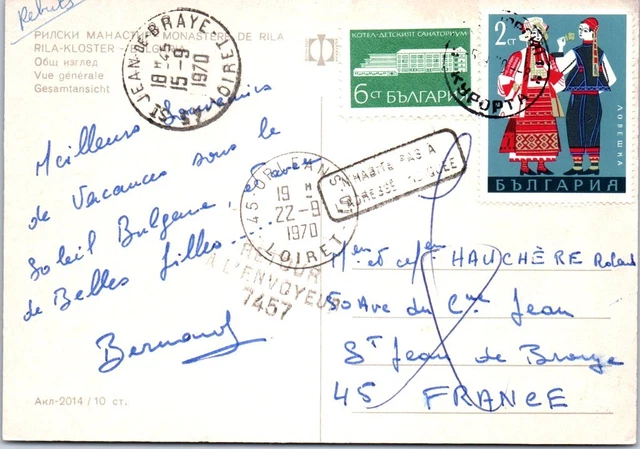 Rebuts
РИЛСКИ МАНАСТИР MONASTÈRE DE RILA
RILA-KLOSTER - BULGARIE
Общ изглед
Vue générale
Gesamtansicht
ST JEAN-DE-BRAYE
18 H 45
15-9
1970
LOIRET 45
КОТЕЛ-ДЕТСКИЯТ САНАТОРИУМ
6 СТ БЪЛГАРИЯ
КУРОРТА
2 СТ
ЛОВЕШКА
БЪЛГАРИЯ
Meilleurs Souvenirs
de Vacances sous le
Soleil Bulgare, et avec
de Belles filles....
Bernard
45 ORLEANS
19 H
22-9
1970
LOIRET
N'HABITE PAS A
L'ADRESSE INDIQUEE
RETOUR
A L'ENVOYEUR
7457
HAUCHÈRE Roland
50 Ave du Cne Jean
St Jean de Braye
45 FRANCE
Акл-2014/10 ст.